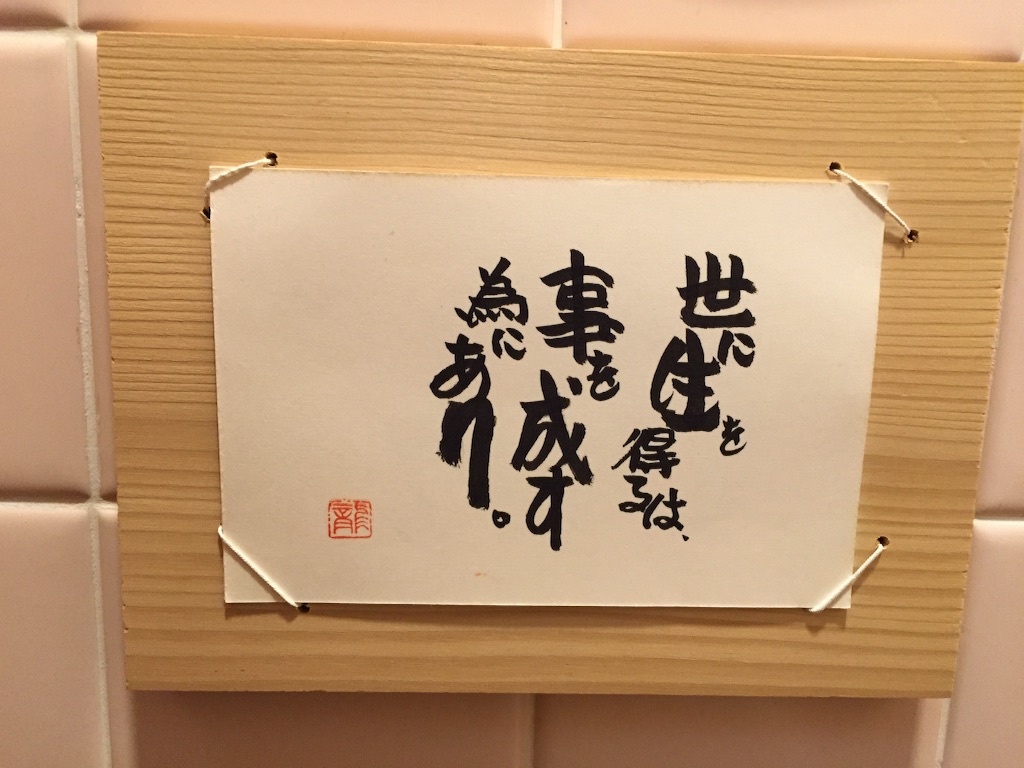 世に生を得るは、
事を成す
為にあり。